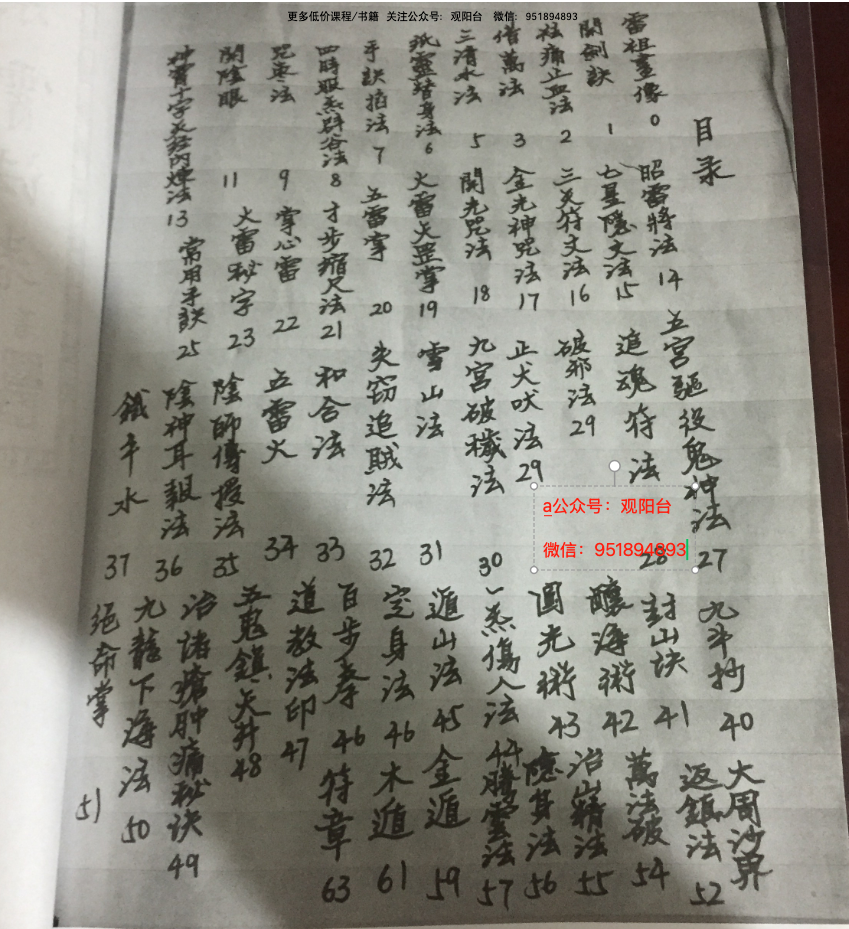 更多低价课程/书籍 关注公众号：观阳台 微信：951894893
目录
雷祖畫像 0
開劍訣 1
祛痛止血法 2
借萬法 3
三清水法 5
紙靈替身法 6
手訣掐法 7
四時服炁辟谷法 8
咒棗法 9
開陰眼 11
神霄十字天经内煉法 13
昭雷將法 14
七星隱文法 15
三天符文法 16
金光神咒法 17
開光咒法 18
火雷天罡掌 19
五雷掌 20
才步縮尺法 21
掌心雷 22
火雷秘字 23
常用手訣 25
五宫驅役鬼神法 27
追魂符法 28
破邪法 29
正犬吠法 29
九宫破穢法 30
雪山法 31
失窃追賊法 32
和合法 33
五雷火 34
陰師傳授法 35
陰神耳報法 36
鐵牛水 37
九斗抄 40
封山块 41
釀海術 42
圓光術 43
一炁傷人法 44
遁山法 45
定身法 46
百步拳 46
道教法印 47
五鬼鎮天井 48
治諸瘡肿痛秘诀 49
九龍下海法 50
絕命掌 51
大周沙界
返鎮法 52
萬法破 54
治山精法 55
隱身法 56
騰雲法 57
金遁 59
木遁 61
符章 63
a公众号：观阳台
微信：951894893